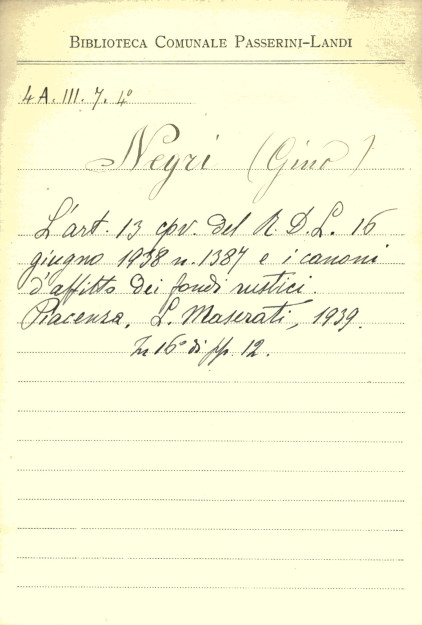 BIBLIOTECA COMUNALE PASSERINI-LANDI
4 A. III. 7. 4º
Negri (Gino)
L'art. 13 cpv. del R. D. L. 16
giugno 1938 n. 1387 e i canoni
d'affitto dei fondi rustici.
Piacenza, L. Maserati, 1939.
In 16º di pp. 12.